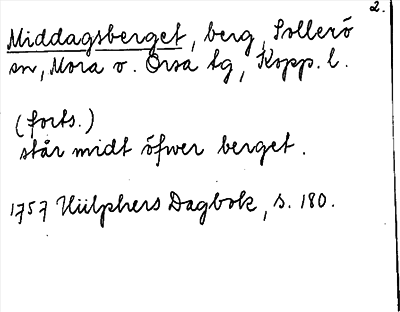 2.
Middagsberget, berg, Sollerö
sn, Mora o. Orsa tg, Kopp. l.
(forts.)
står midt öfwer berget.
1757 Hülphers Dagbok, s. 180.